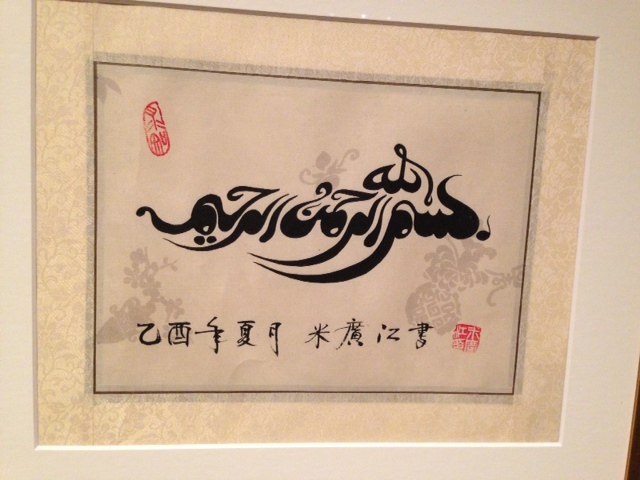 بسم الله الرحمن الرحيم
乙酉年夏月 米廣江書